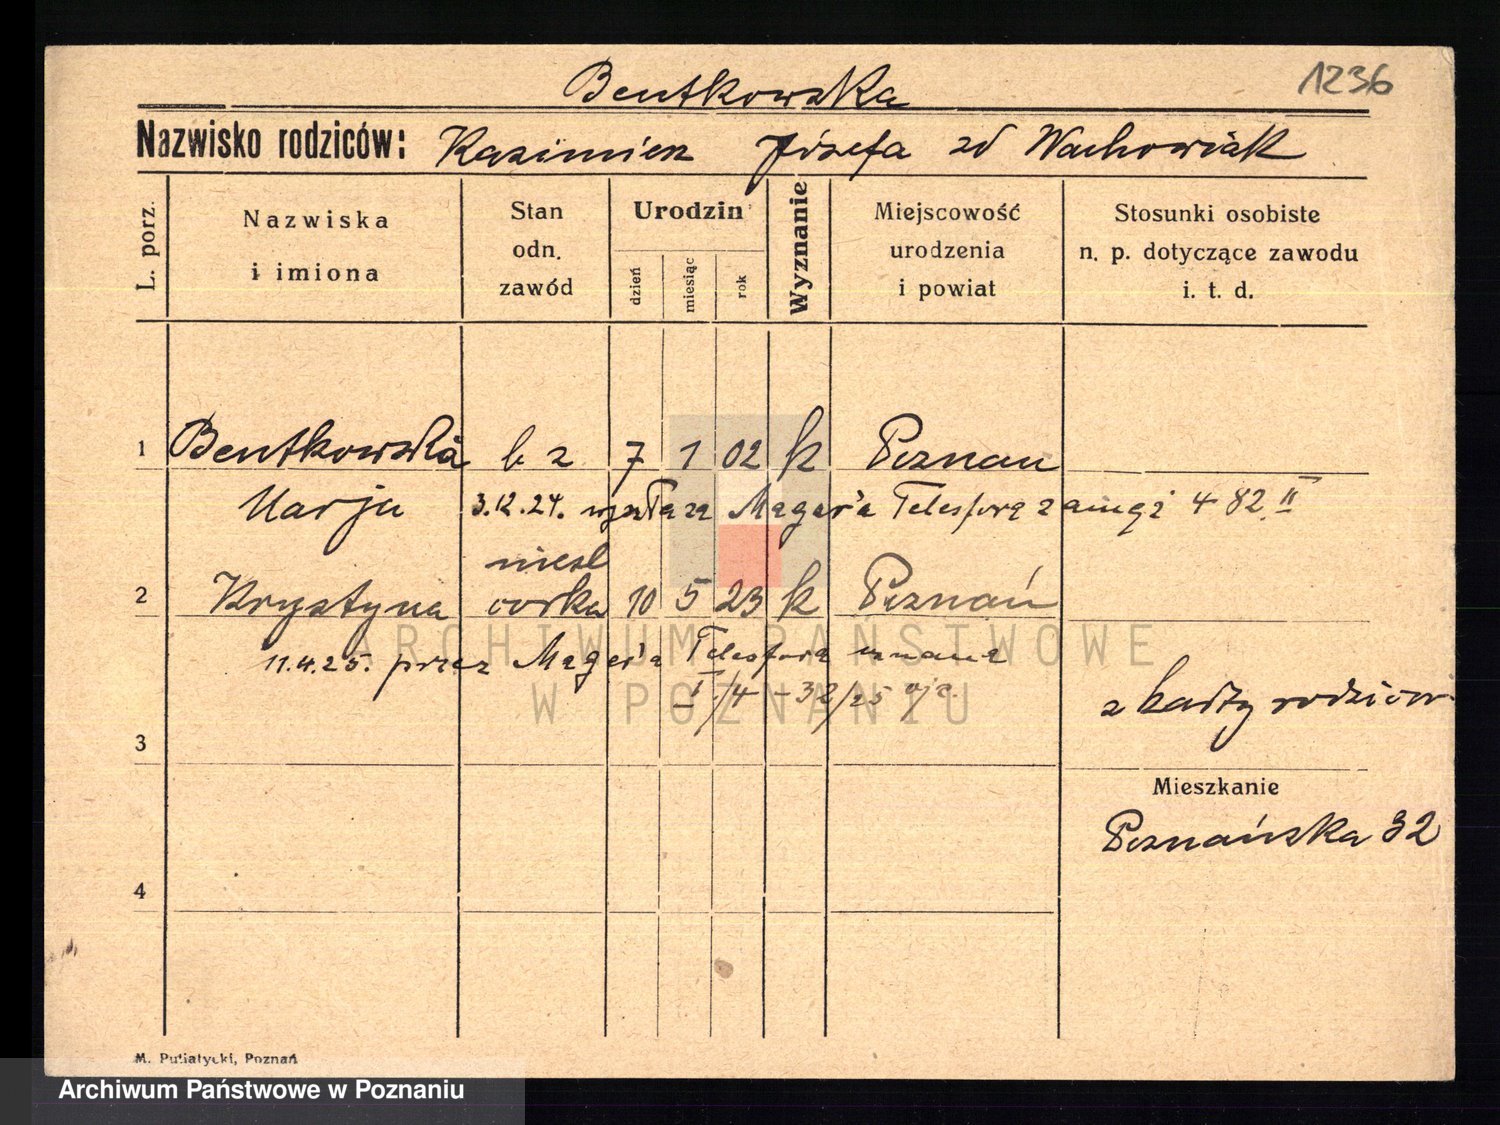 1236
Bentkowska
Nazwisko rodziców: Kazimierz Józefa zd Wachowiak
L. porz.
Nazwiska
i imiona
Stan
odn.
zawód
Urodzin
dzień
miesiąc
rok
Wyznanie
Miejscowość
urodzenia
i powiat
Stosunki osobiste
n. p. dotyczące zawodu
i. t. d.
1 Bentkowska b z 7 1 02 k Poznan
Marja 3.12.24. wyszła za Mager'a Telesfora zamąż 4 82. II
nieśl
2 Krystyna córka 10 5 23 k Poznań
11.4.25. przez Mager'a Telesfora uznana
I/4 - 32/25
z karty rodziców
3
Mieszkanie
Poznańska 32
4
M. Putiatycki, Poznań
ARCHIWUM PAŃSTWOWE
W POZNANIU
Archiwum Państwowe w Poznaniu